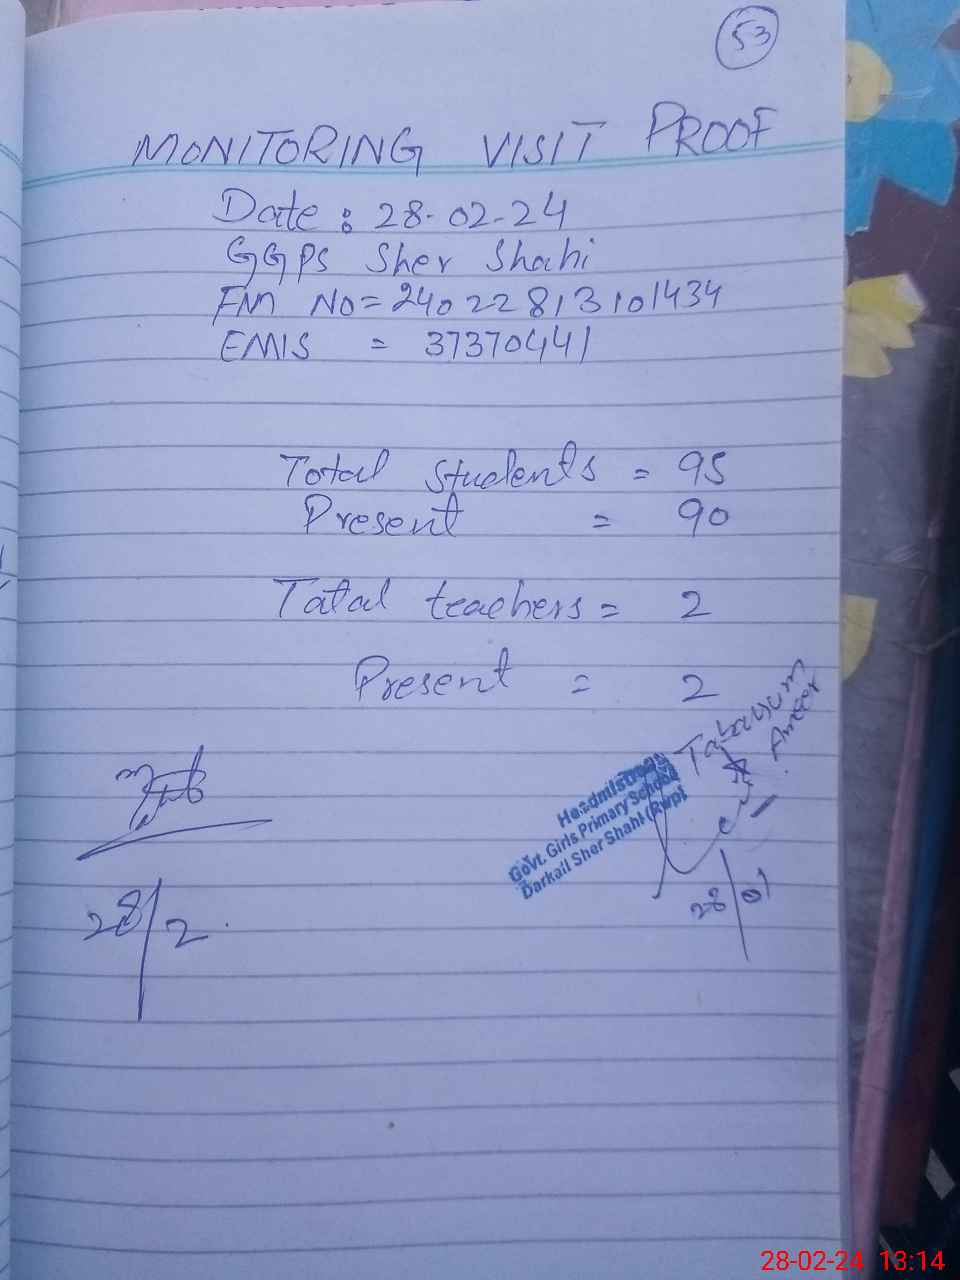 53
MONITORING VISIT PROOF
Date : 28-02-24
GGPS Sher Shahi
FM NO = 24022813101434
EMIS = 37370441
Total Students = 95
Present = 90
Tatal teachers = 2
Present = 2
Tabassum
Ameer
Headmistress
Govt. Girls Primary School
Darkali Sher Shahi (Rwp)
28/2
28/01
28-02-24 13:14